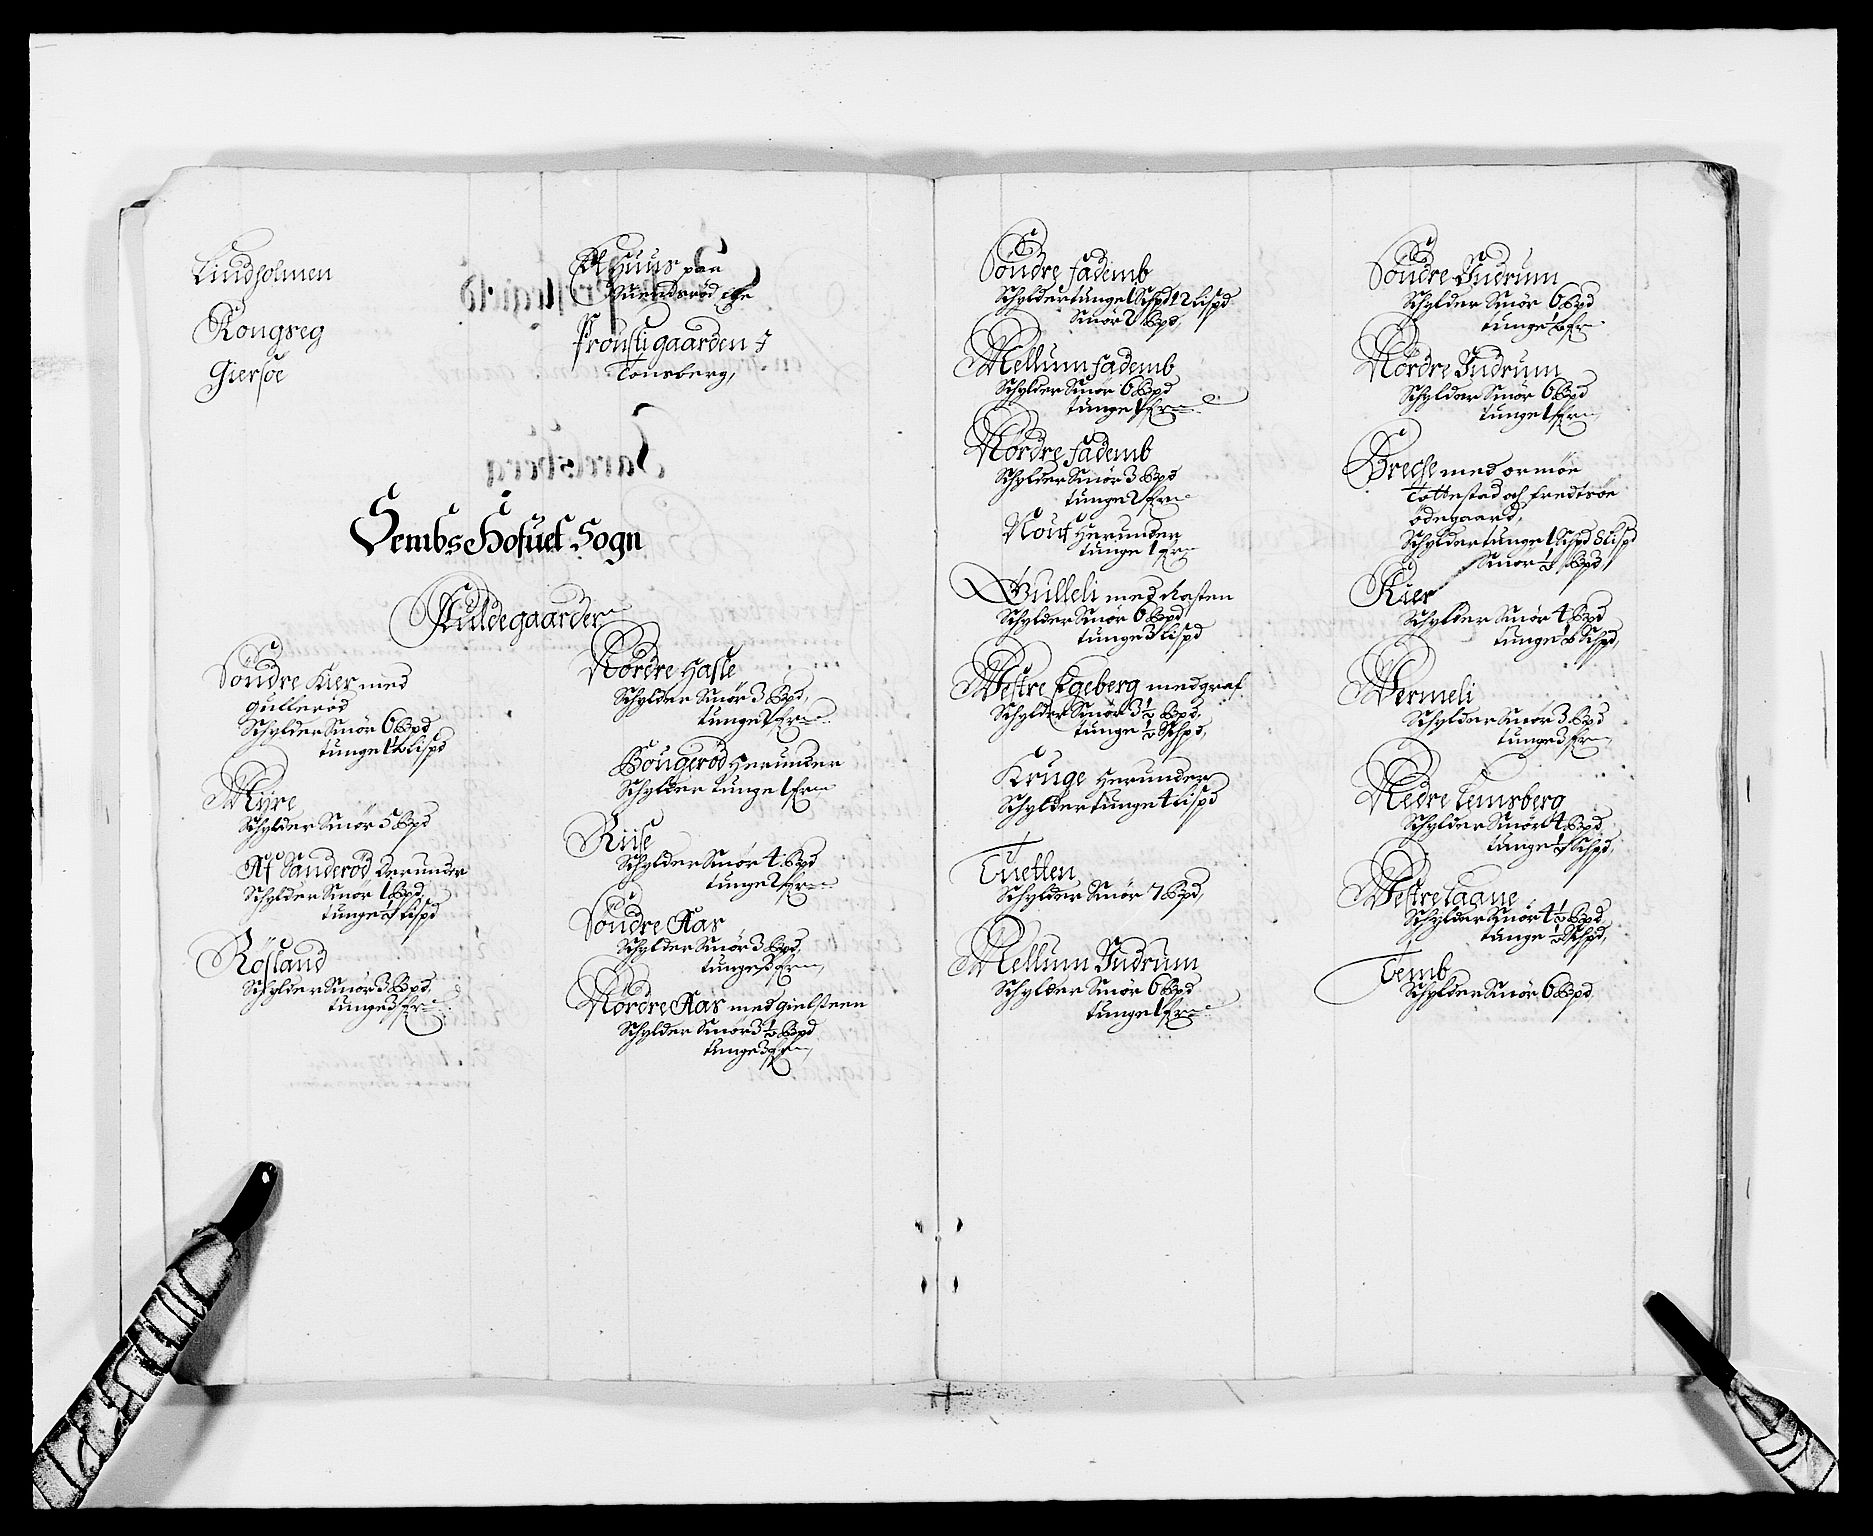 Lindholmen
Kongseg
Giersøe
Et Huus paa
Suendsrød eÿe
Proustigaarden J
Tonsberg,
Sembs Hofuet Sogn
Fuldegaarder
Söndre Kier med
gullerød
Schylder Smör 6 Bpd
tunge 1½ Lispd
Myre
Schylder Smör 5 Bpd
Af Sanderød Herunder
Schylder Smör 1 Bpd,
tunge Lispd
Røsland
Schylder Smör 3 Bpd,
tunge 3 fr
Nordre Hasle
Schylder Smör 3 Bpd,
tunge 2 fr
Bougerød Herunder
Schylder tunge 1 fr
Riise
Schylder Smör 4 Bpd
tunge 2 fr
Söndre Aas
Schylder Smör 3 Bpd,
tunge 3 fr
Nordre Aas med gielsteen
Schylder Smör 3½ Bpd
tunge 3 fr
Söndre fademb
Schylder tunge 1 Schpd 12 Lispd
Smör 2 Bpd,
Mellum fademb
Schylder Smör 6 Bpd
tunge 1 fr
Nordre fademb
Schylder Smör 3 Bpd
tunge 2 fr
Nout Herunder
tunge 1 fr
Gulleli med Rasten
Schylder Smör 6 Bpd,
tunge 3 Lispd
Westre Egeberg med graf
Schylder Smör 3½ Bpd,
tunge ½ Schpd,
Kruge Herunder
Schylder tunge 4 Lispd
Tuetten
Schylder Smör 7 Bpd,
Mellum Jndrum
Schylder Smör 6 Bpd
tunge 1 fr
Söndre Jndrum
Schylder Smör 6 Bpd
tunge fr
Nordre Jndrum
Schylder Smör 6 Bpd
tunge 1 fr
Breche med ormöe
Tottestad och fredtsöe
ödegaard,
Schylder tunge 1 Schpd 8 Lispd
Smör ½ Bpd,
Kier
Schylder Smör 4 Bpd
tunge ½ Schpd,
Wermeli
Schylder Smör 3 Bpd
tunge 3 fr
Nedre Lensberg
Schylder Smör 4 Bpd,
tunge Schpd,
Westre Laane
Schylder Smör 4½ Bpd,
tunge ½ Schpd,
Semb
Schylder Smör 6 Bpd